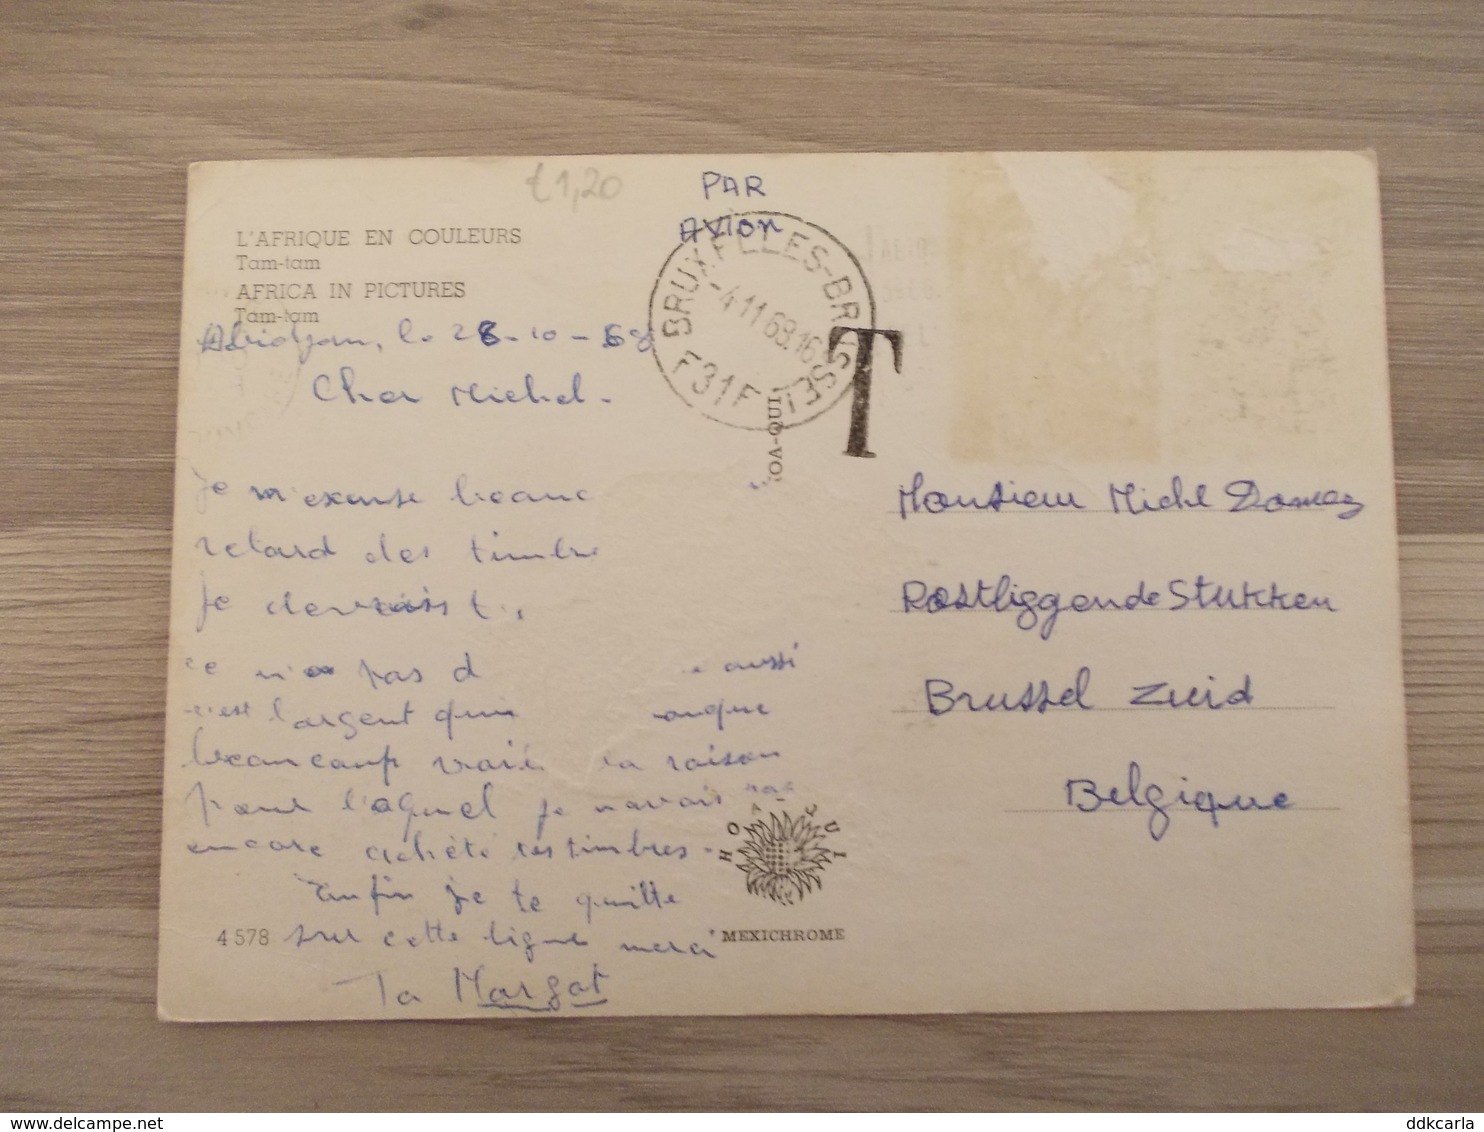 €1,20
PAR
AVION
L'AFRIQUE EN COULEURS
Tam-tam
AFRICA IN PICTURES
Tam-tam
BRUXELLES-BRUSSEL
-4-11 68.16
F31F
T
HOA-QUI
Abidjan, le 28-10-68
Cher Michel.
Je m'excuse beauc
retard des timbre
Je devrais t
ce n'a pas d aussi
c'est l'argent qui manque
beaucoup voici la raison
pour l'aquel je n'avais pas
encore achété tes timbres -
Enfin je te quitte
sur cette ligne merci
Ta Margot
4578
HOA-QUI
MEXICHROME
Monsieur Michel
Postliggende Stukken
Brussel Zuid
Belgique
ddkcarla